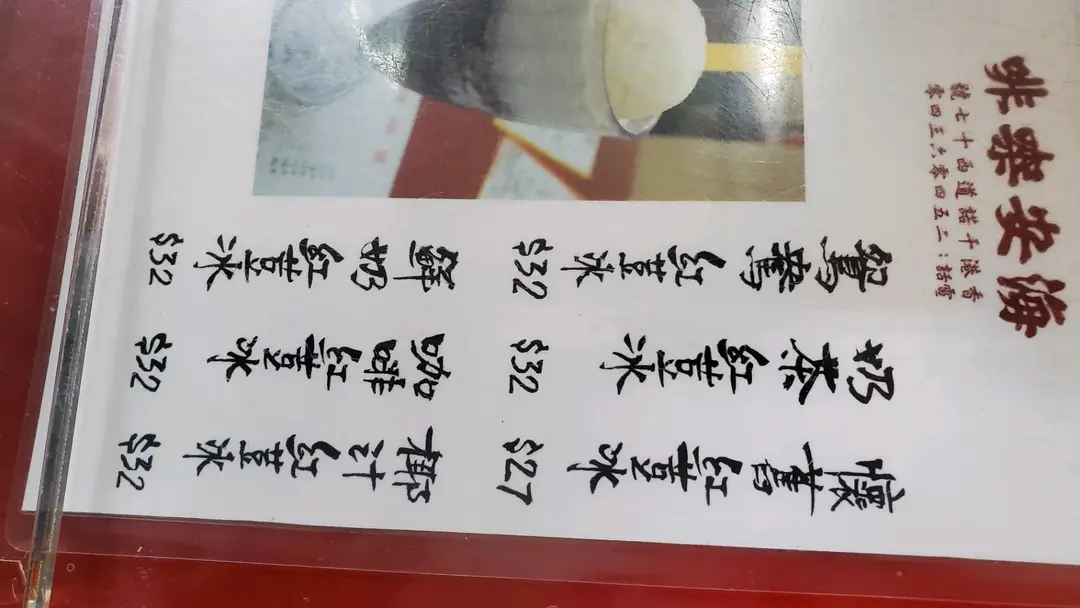 海安㗎啡
香港干諾道西十七號
電話：二五四零六三四零
懷舊紅荳冰
$27
奶茶紅荳冰
$32
鴛鴦紅荳冰
$32
椰汁紅荳冰
$32
咖啡紅荳冰
$32
鮮奶紅荳冰
$32